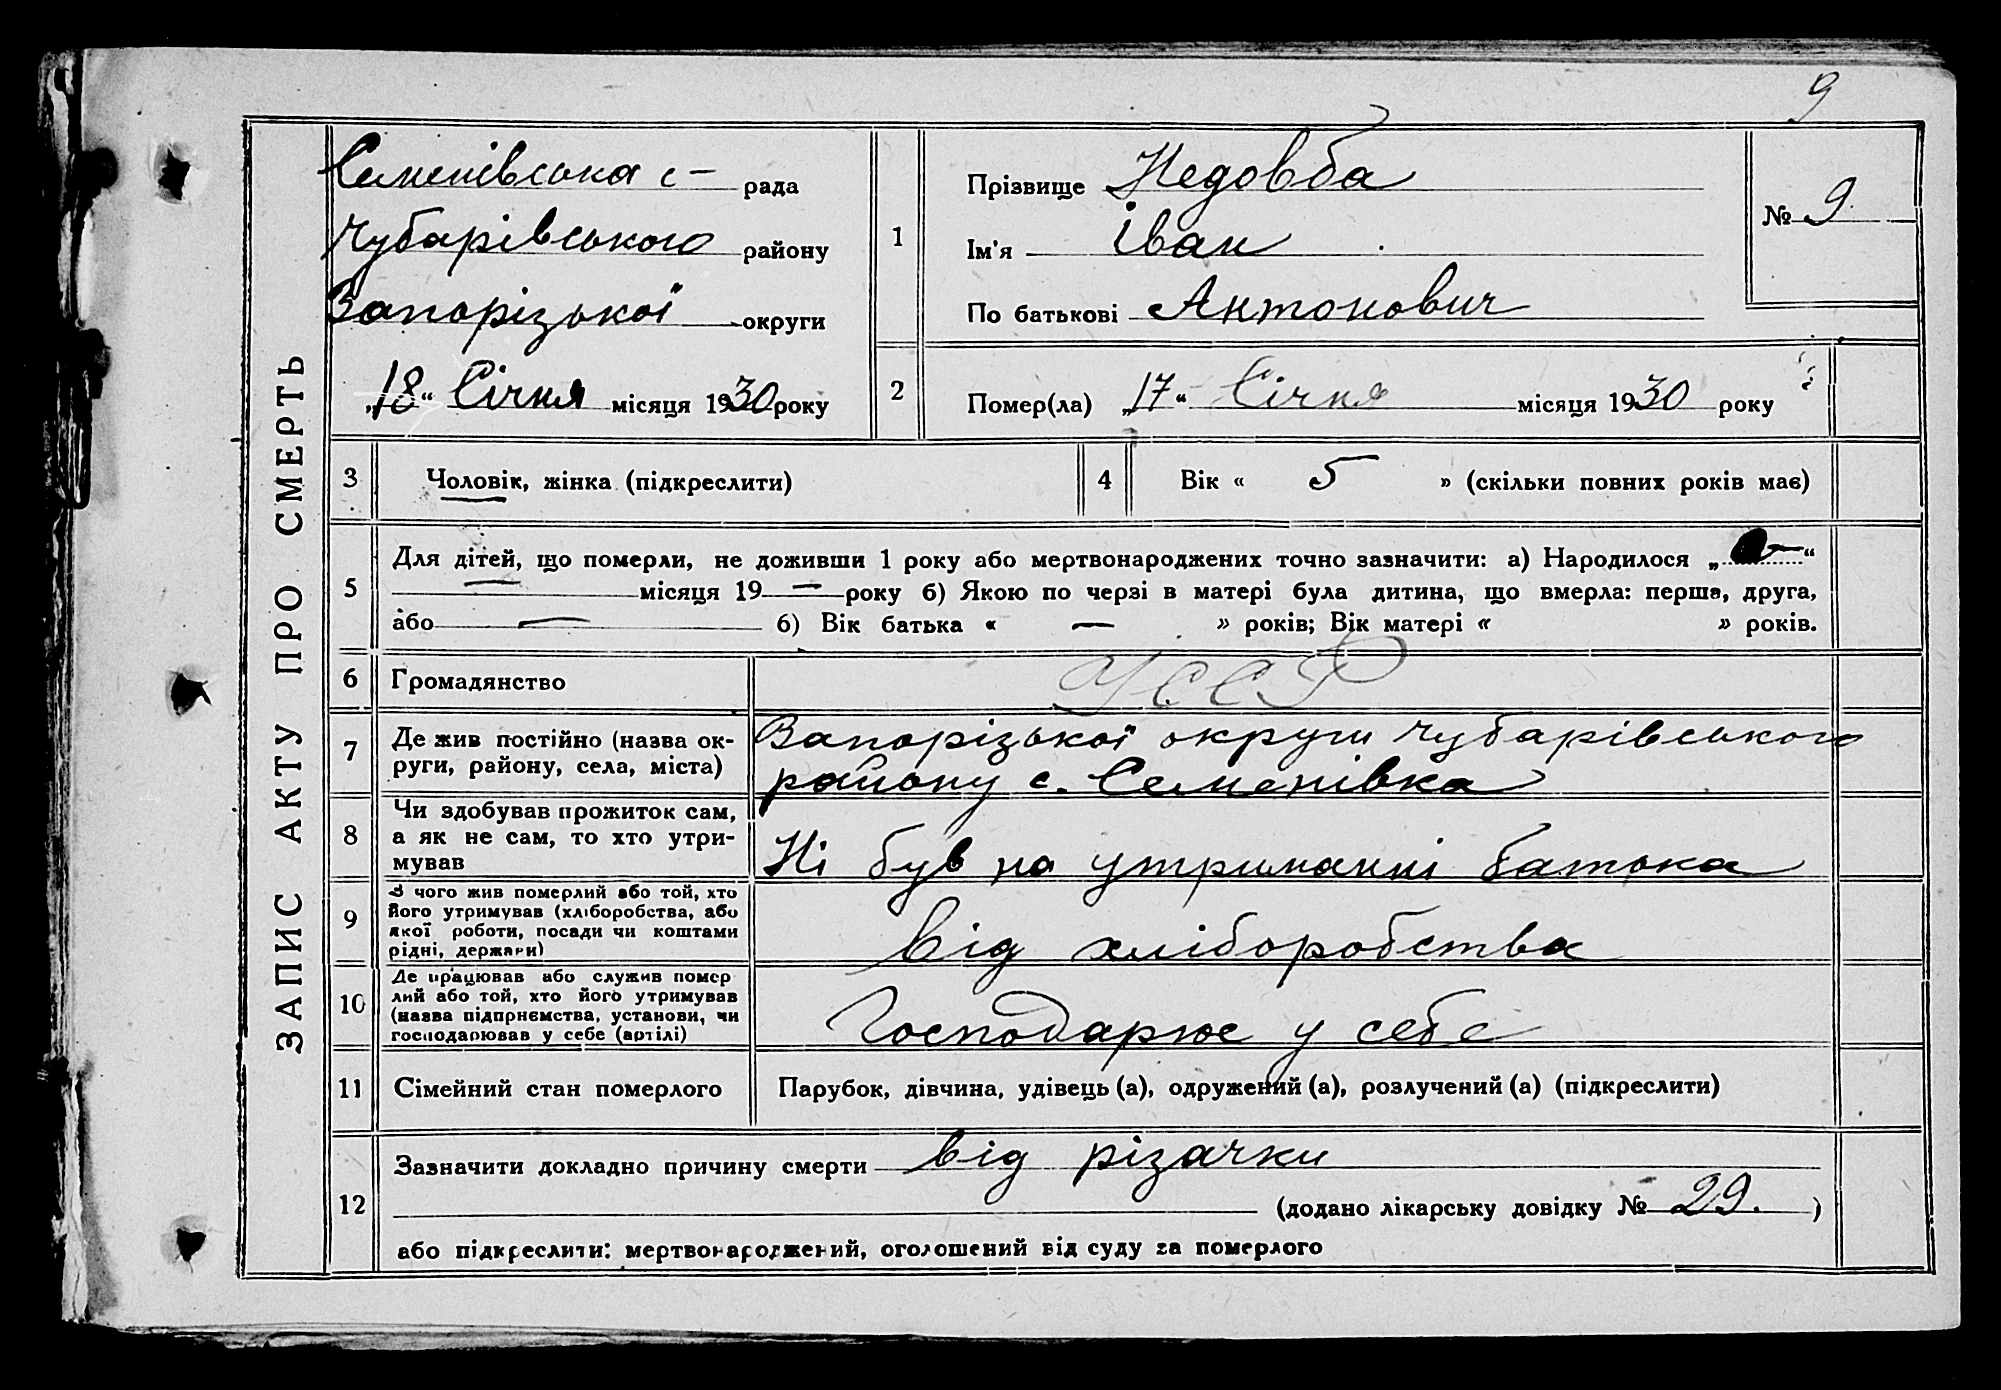 9
ЗАПИС АКТУ ПРО СМЕРТЬ
Семенівська с - рада
Чубарівського району
Запорізької округи
„18“ Січня місяця 1930 року
1
Прізвище Недовба
Ім'я Іван
По батькові Антонович
№ 9
2
Помер(ла) „17“ Січня місяця 1930 року
3
Чоловік, жінка (підкреслити)
4
Вік « 5 » (скільки повних років має)
5
Для дітей, що померли, не доживши 1 року або мертвонароджених точно зазначити: а) Народилося „ — “
— місяця 19 — року б) Якою по черзі в матері була дитина, що вмерла: перша, друга,
або — 6) Вік батька « — » років; Вік матері « » років.
6
Громадянство
УССР
7
Де жив постійно (назва ок-
руги, району, села, міста)
Запорізької округи Чубарівського
району с. Семенівка
8
Чи здобував прожиток сам,
а як не сам, то хто утри-
мував
Ні був на утриманні батька
9
З чого жив померлий або той, хто
його утримував (хліборобства, або
якої роботи, посади чи коштами
рідні, держави)
від хліборобства
10
Де працював або служив помер
лий або той, хто його утримував
(назва підприємства, установи, чи
господарював у себе (артілі)
Господарює у себе
11
Сімейний стан померлого
Парубок, дівчина, удівець (а), одружений (а), розлучений (а) (підкреслити)
12
Зазначити докладно причину смерти від різачки
(додано лікарську довідку № 29. )
або підкреслити: мертвонароджений, оголошений від суду за померлого